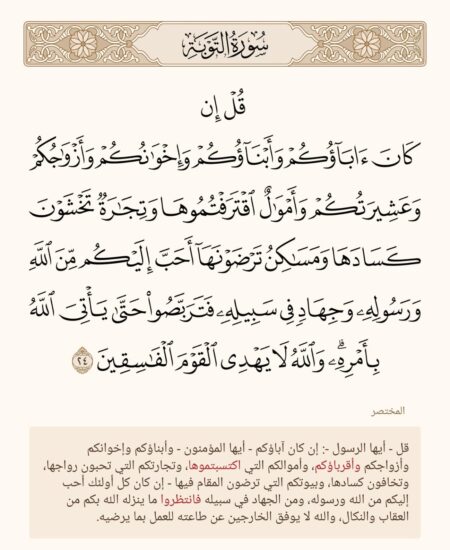 سُورَةُ التَّوۡبَةِ
قُلۡ إِن
كَانَ ءَابَآؤُكُمۡ وَأَبۡنَآؤُكُمۡ وَإِخۡوَٰنُكُمۡ وَأَزۡوَٰجُكُمۡ
وَعَشِيرَتُكُمۡ وَأَمۡوَٰلٌ ٱقۡتَرَفۡتُمُوهَا وَتِجَٰرَةٞ تَخۡشَوۡنَ
كَسَادَهَا وَمَسَٰكِنُ تَرۡضَوۡنَهَآ أَحَبَّ إِلَيۡكُم مِّنَ ٱللَّهِ
وَرَسُولِهِۦ وَجِهَادٖ فِي سَبِيلِهِۦ فَتَرَبَّصُواْ حَتَّىٰ يَأۡتِيَ ٱللَّهُ
بِأَمۡرِهِۦۗ وَٱللَّهُ لَا يَهۡدِي ٱلۡقَوۡمَ ٱلۡفَٰسِقِينَ ٢٤
المختصر
قل - أيها الرسول -: إن كان آباؤكم - أيها المؤمنون - وأبناؤكم وإخوانكم
وأزواجكم وأقرباؤكم، وأموالكم التي اكتسبتموها، وتجارتكم التي تحبون رواجها،
وتخافون كسادها، وبيوتكم التي ترضون المقام فيها - إن كان كل أولئك أحب
إليكم من الله ورسوله، ومن الجهاد في سبيله فانتظروا ما ينزله الله بكم من
العقاب والنكال، والله لا يوفق الخارجين عن طاعته للعمل بما يرضيه.